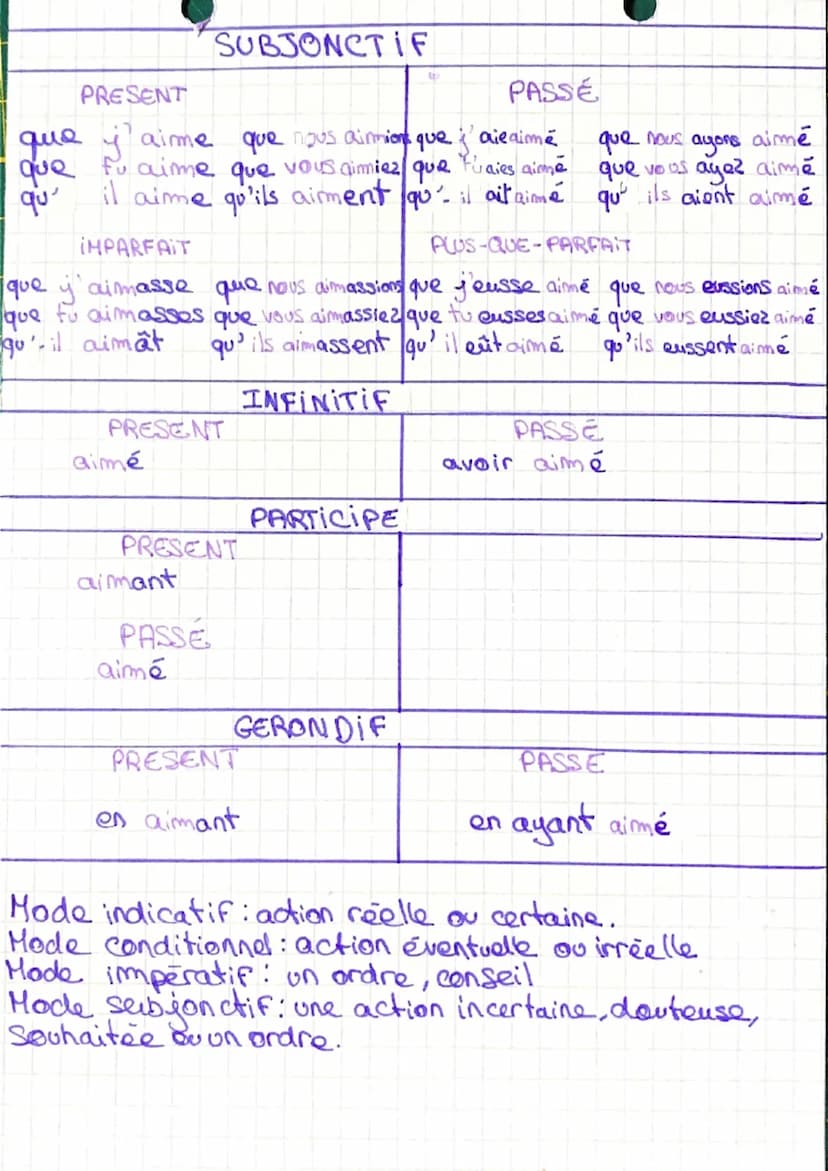 SUBJONCTIF
PRESENT
que j'aime que nous aimions
que tu aime que vous aimiez
qu' il aime qu'ils aiment
PASSÉ
que j'aie aimé que nous ayons aimé
que tu aies aimé que vous ayez aimé
qu'-il ait aimé qu' ils aient aimé
IMPARFAIT
que j'aimasse que nous aimassions
que tu aimasses que vous aimassiez
qu'-il aimât qu'ils aimassent
PLUS-QUE-PARFAIT
que j'eusse aimé que nous eussions aimé
que tu eusses aimé que vous eussiez aimé
qu'il eût aimé qu'ils eussent aimé
INFINITIF
PRESENT
aimé
PASSÉ
avoir aimé
PARTICIPE
PRESENT
aimant
PASSÉ
aimé
GERONDIF
PRESENT
en aimant
PASSE
en ayant aimé
Mode indicatif : action réelle ou certaine.
Mode conditionnel : action éventuelle ou irréelle
Mode impératif : un ordre, conseil
Mode subjonctif : une action incertaine, douteuse,
souhaitée ou un ordre.